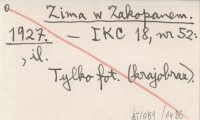 Zima w Zakopanem.
1927. — IKC 18, nr 52:
, il.
Tylko fot. (krajobraz).